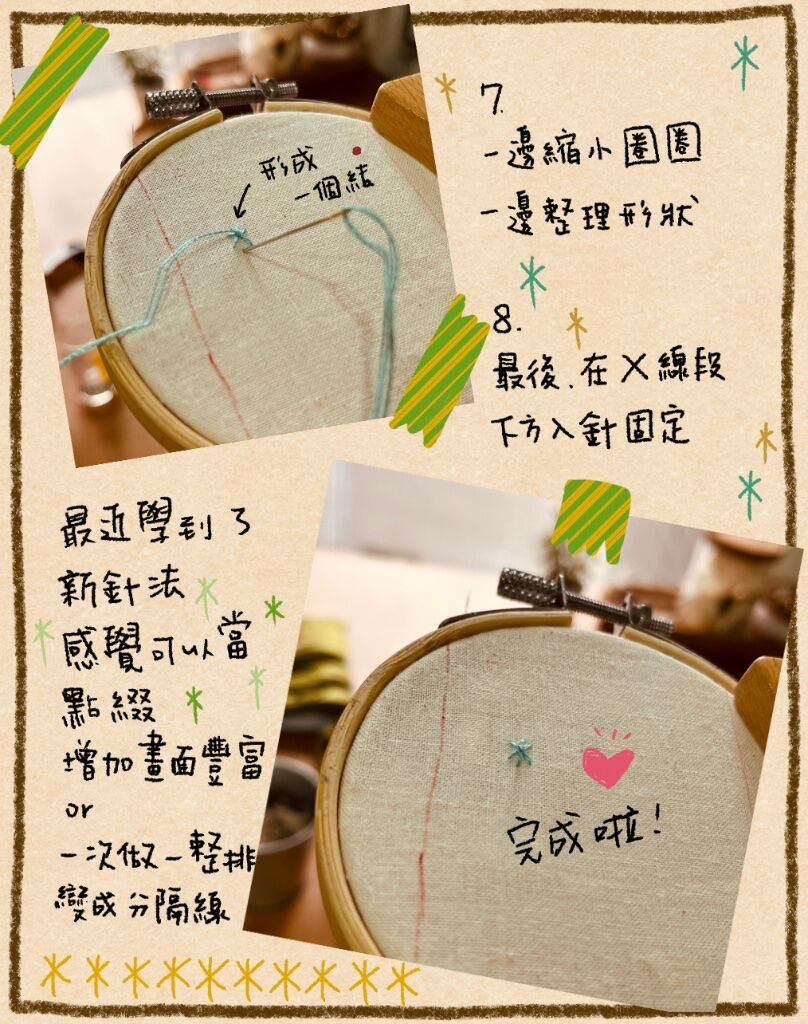 形成
一個結
7.
一邊縮小圈圈
一邊整理形狀
8.
最後、在X線段
下方入針固定
最近學到了
新針法
感覺可以當
點綴
增加畫面豐富
or
一次做一整排
變成分隔線
完成啦!